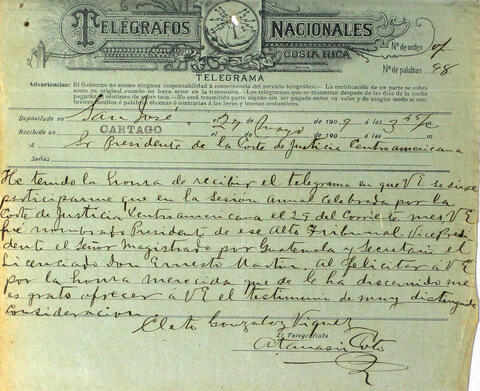 TELÉGRAFOS NACIONALES
COSTA RICA
Nº de orden 07
TELEGRAMA
Nº de palabras 98
Advertencias: El Gobierno no asume ninguna responsabilidad á consecuencia del servicio telegráfico.—La rectificación de un parte se cobra
como su original cuando no haya error en la trasmisión.—Los telegramas que se trasmitan después de las diez de la noche
pagarán
Depositado en San José el 27 mayo de 1909 á las
Recibido en CARTAGO de 190 á las
A Sr Presidente de la Corte de Justicia Centroamericana
Señas
He tenido la honra de recibir el telegrama en que V E se sirve
participarme que en la sesion anual celebrada por la
Corte de Justicia Centroamericana el 25 del corriente mes V E
fué nombrado Presidente de ese Alto Tribunal Vicepresi
dente el Señor Magistrado por Guatemala y Secretario el
Licenciado Don Ernesto Martin. Al felicitar á V E
por la honra merecida que se le ha discernido me
es grato ofrecer á V E el testimonio de muy distinguida
consideracion
Cleto Gonzalez Viquez
El Telegrafista
Atanasio Soto